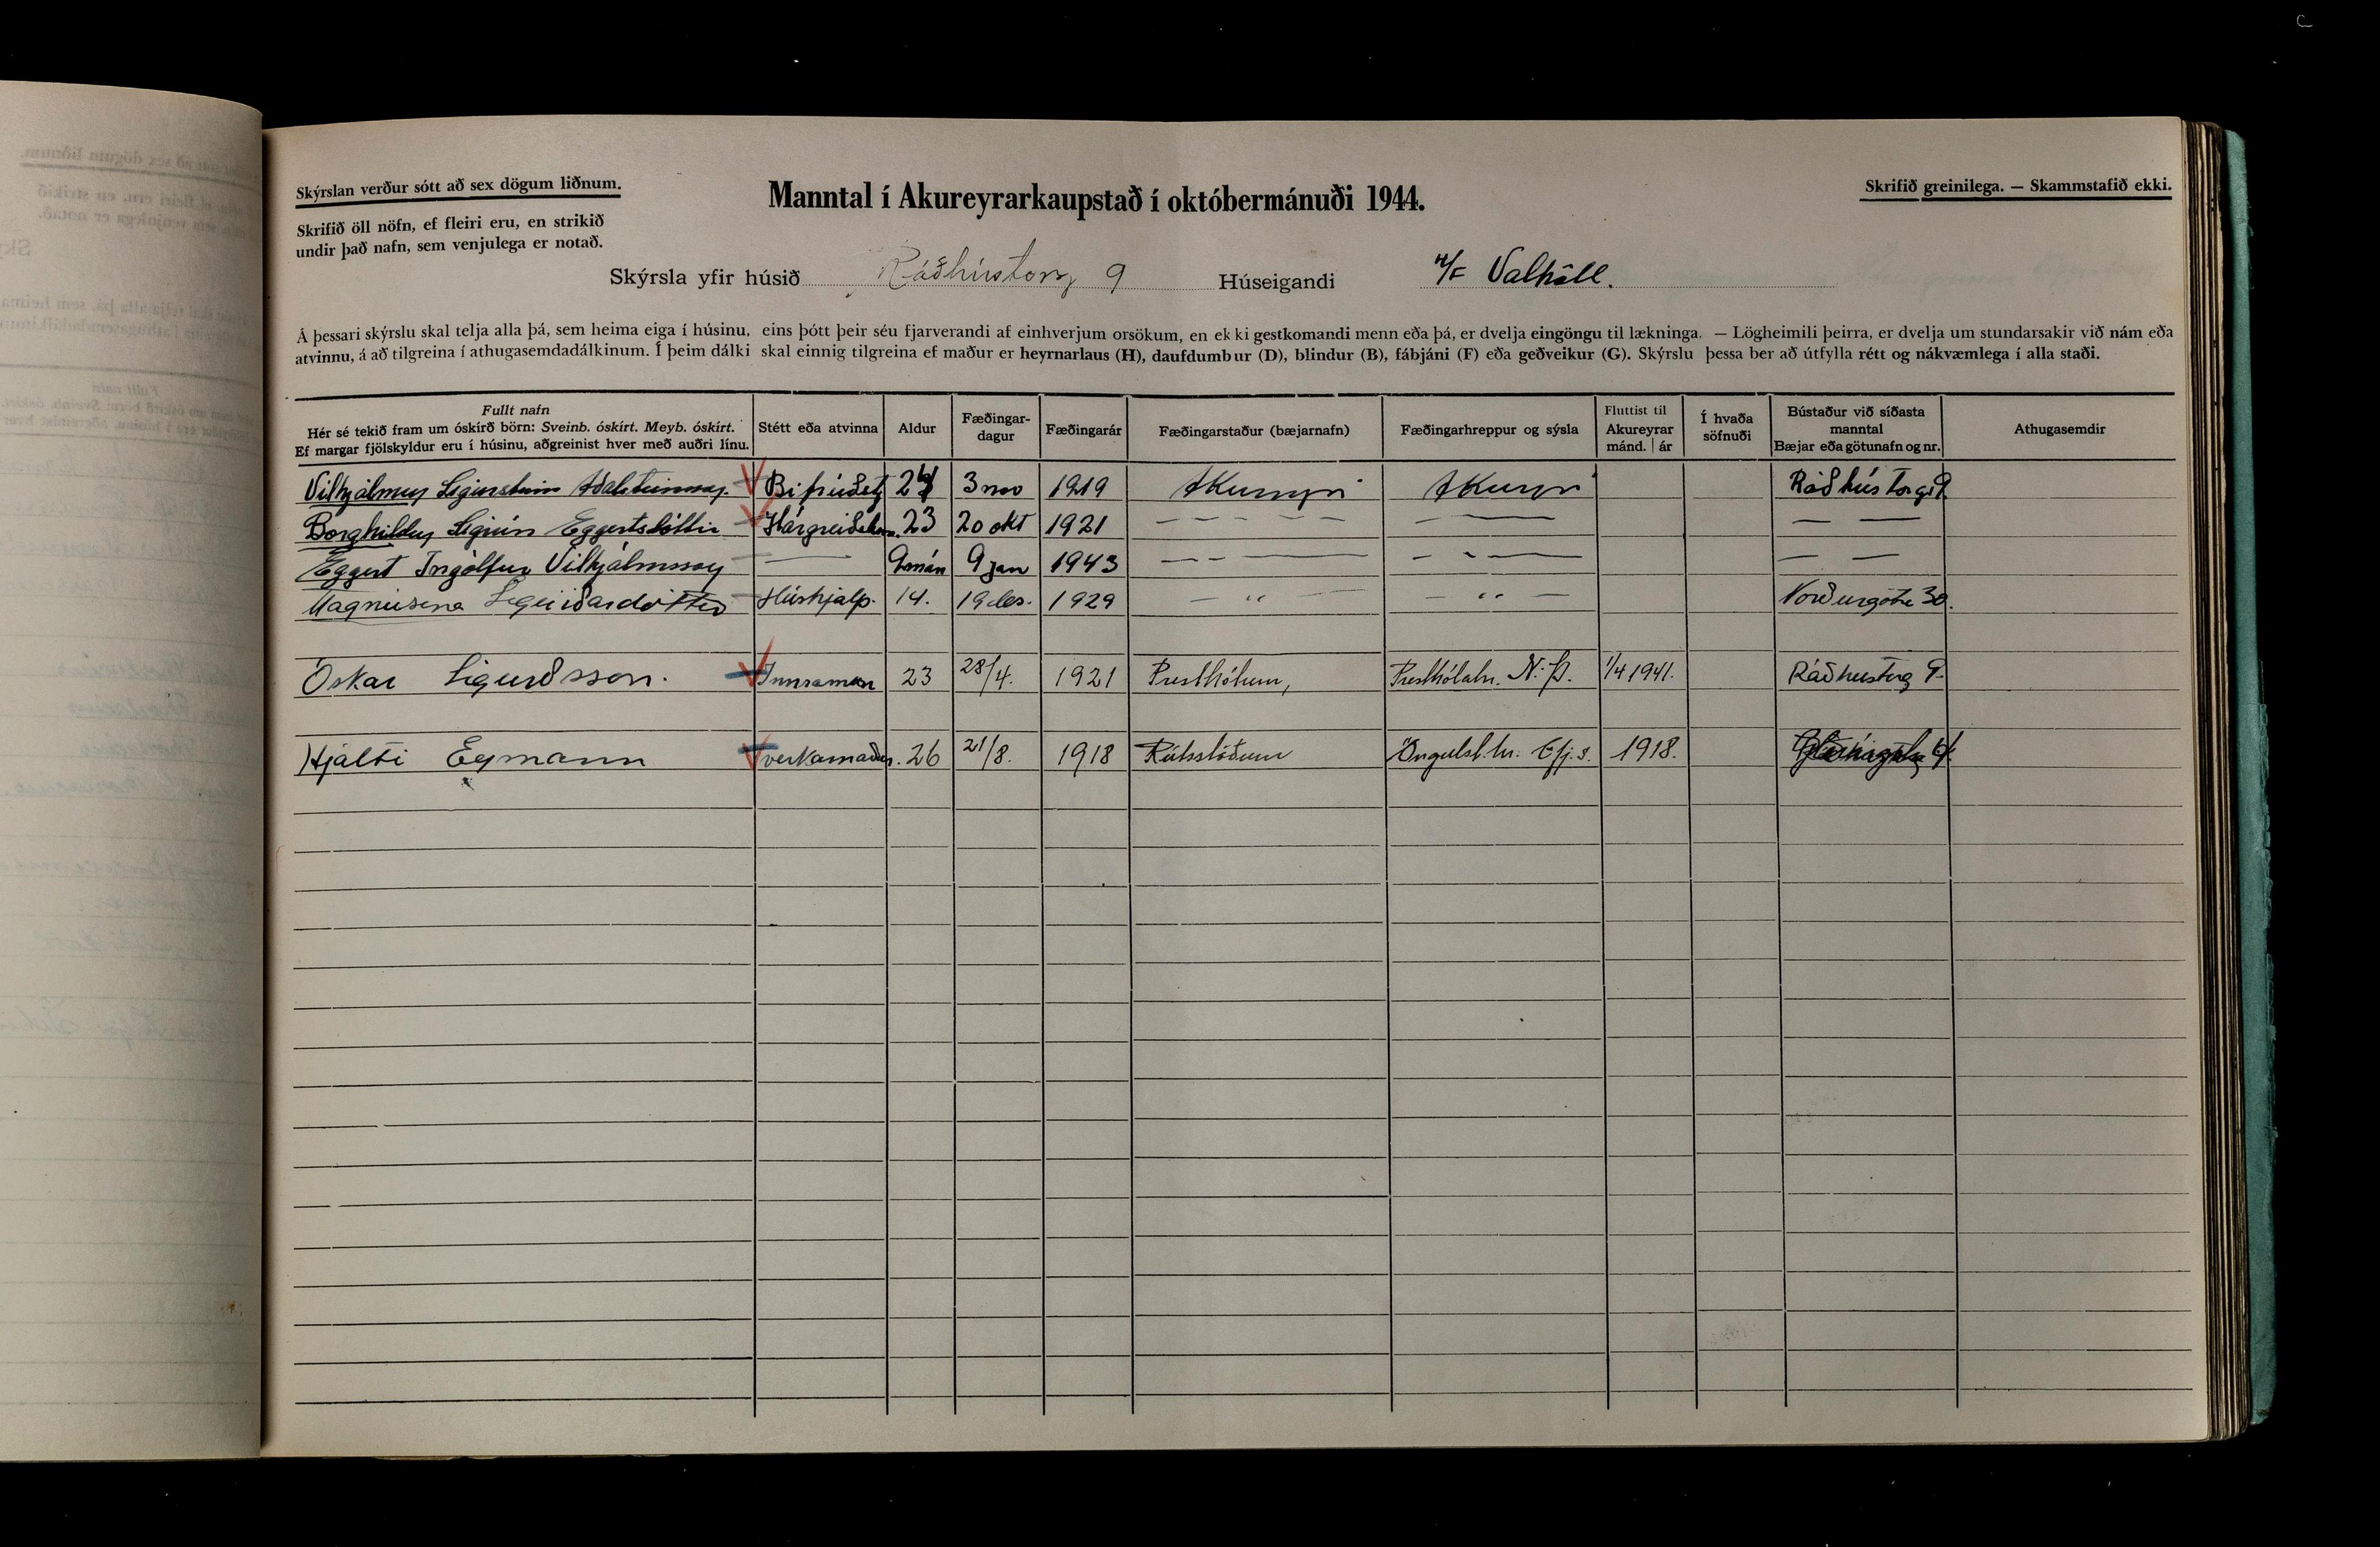 Skýrslan verður sótt að sex dögum liðnum.
Skrifið öll nöfn, ef fleiri eru, en strikið
undir það nafn, sem venjulega er notað.
Manntal í Akureyrarkaupstað í októbermánuði 1944.
Skrifið greinilega. — Skammstafið ekki.
Skýrsla yfir húsið Ráðhústorg 9 Húseigandi H/F Valhöll.
Á þessari skýrslu skal telja alla þá, sem heima eiga í húsinu, eins þótt þeir séu fjarverandi af einhverjum orsökum, en ekki gestkomandi menn eða þá, er dvelja eingöngu til lækninga. — Lögheimili þeirra, er dvelja um stundarsakir við nám eða
atvinnu, á að tilgreina í athugasemdadálkinum. Í þeim dálki skal einnig tilgreina ef maður er heyrnarlaus (H), daufdumbur (D), blindur (B), fábjáni (F) eða geðveikur (G). Skýrslu þessa ber að útfylla rétt og nákvæmlega í alla staði.
Fullt nafn
Hér sé tekið fram um óskírð börn: Sveinb. óskírt. Meyb. óskírt.
Ef margar fjölskyldur eru í húsinu, aðgreinist hver með auðri línu.
Stétt eða atvinna
Aldur
Fæðingar-
dagur
Fæðingarár
Fæðingarstaður (bæjarnafn)
Fæðingarhreppur og sýsla
Fluttist til
Akureyrar
mánd. | ár
Í hvaða
söfnuði
Bústaður við síðasta
manntal
Bæjar eða götunafn og nr.
Athugasemdir
Vilhjálmur Sigursteinn Aðalsteinsson. 24 3 nov 1919 Akureyri Akureyri Ráðhústorgi 9
Borghildur Sigrún Eggertsdóttir 23 20 okt 1921 — — — — — — — —
Eggert Ingólfur Vilhjálmsson — 9 mán 9 jan 1943 — — — — — — — —
Magnúsína Sigurðardóttir Húshjálp. 14. 19 des. 1929 — " — — " — Norðurgötu 30.
Óskar Sigurðsson. 23 28/4. 1921 Presthólum, Presthólahr. N. Þ. 1/4 1941. Ráðhústorg 9.
Hjalti Eymann verkamaður. 26 21/8. 1918 Rútsstöðum Öngulst. hr. Eyj. s. 1918.